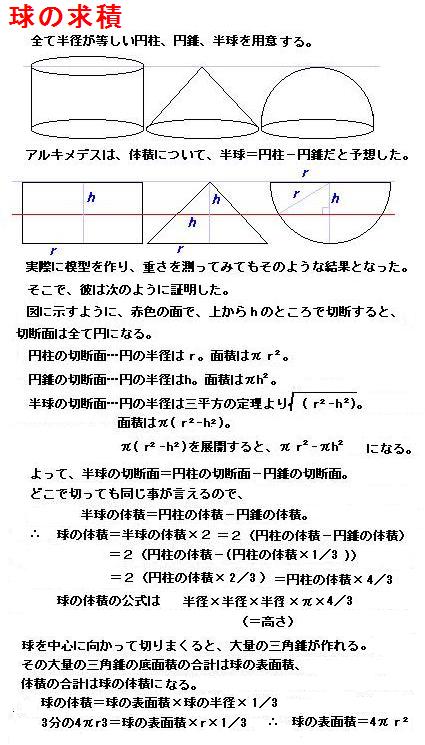 球の求積
全て半径が等しい円柱、円錐、半球を用意する。
アルキメデスは、体積について、半球＝円柱－円錐だと予想した。
r
h h r h
r r
実際に模型を作り、重さを測ってみてもそのような結果となった。
そこで、彼は次のように証明した。
図に示すように、赤色の面で、上からhのところで切断すると、
切断面は全て円になる。
円柱の切断面…円の半径はr。面積はπr²。
円錐の切断面…円の半径はh。面積はπh²。
半球の切断面…円の半径は三平方の定理より√(r²-h²)。
面積はπ(r²-h²)。
π(r²-h²)を展開すると、πr²-πh² になる。
よって、半球の切断面＝円柱の切断面－円錐の切断面。
どこで切っても同じ事が言えるので、
半球の体積＝円柱の体積－円錐の体積。
∴ 球の体積＝半球の体積×２＝２（円柱の体積－円錐の体積）
＝２（円柱の体積－(円柱の体積×１／３））
＝２（円柱の体積×２／３）＝円柱の体積×４／３
球の体積の公式は 半径×半径×半径×π×４／３
（＝高さ）
球を中心に向かって切りまくると、大量の三角錐が作れる。
その大量の三角錐の底面積の合計は球の表面積、
体積の合計は球の体積になる。
球の体積＝球の表面積×球の半径×１／３
3分の4πr3＝球の表面積×r×１／３ ∴ 球の表面積＝4πr²